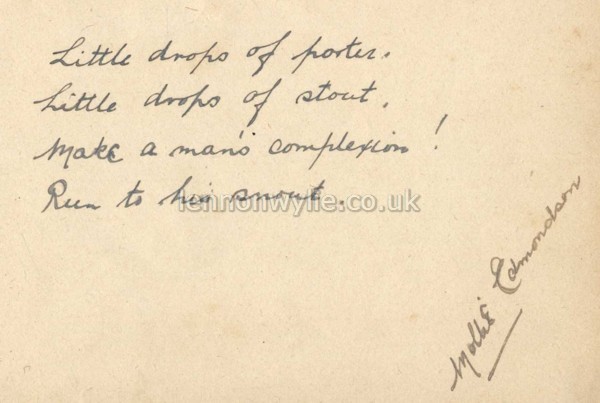 Little drops of porter.
Little drops of stout.
Make a man's complexion!
Run to his snout.
lennonwylie.co.uk
Mollie Edmondson